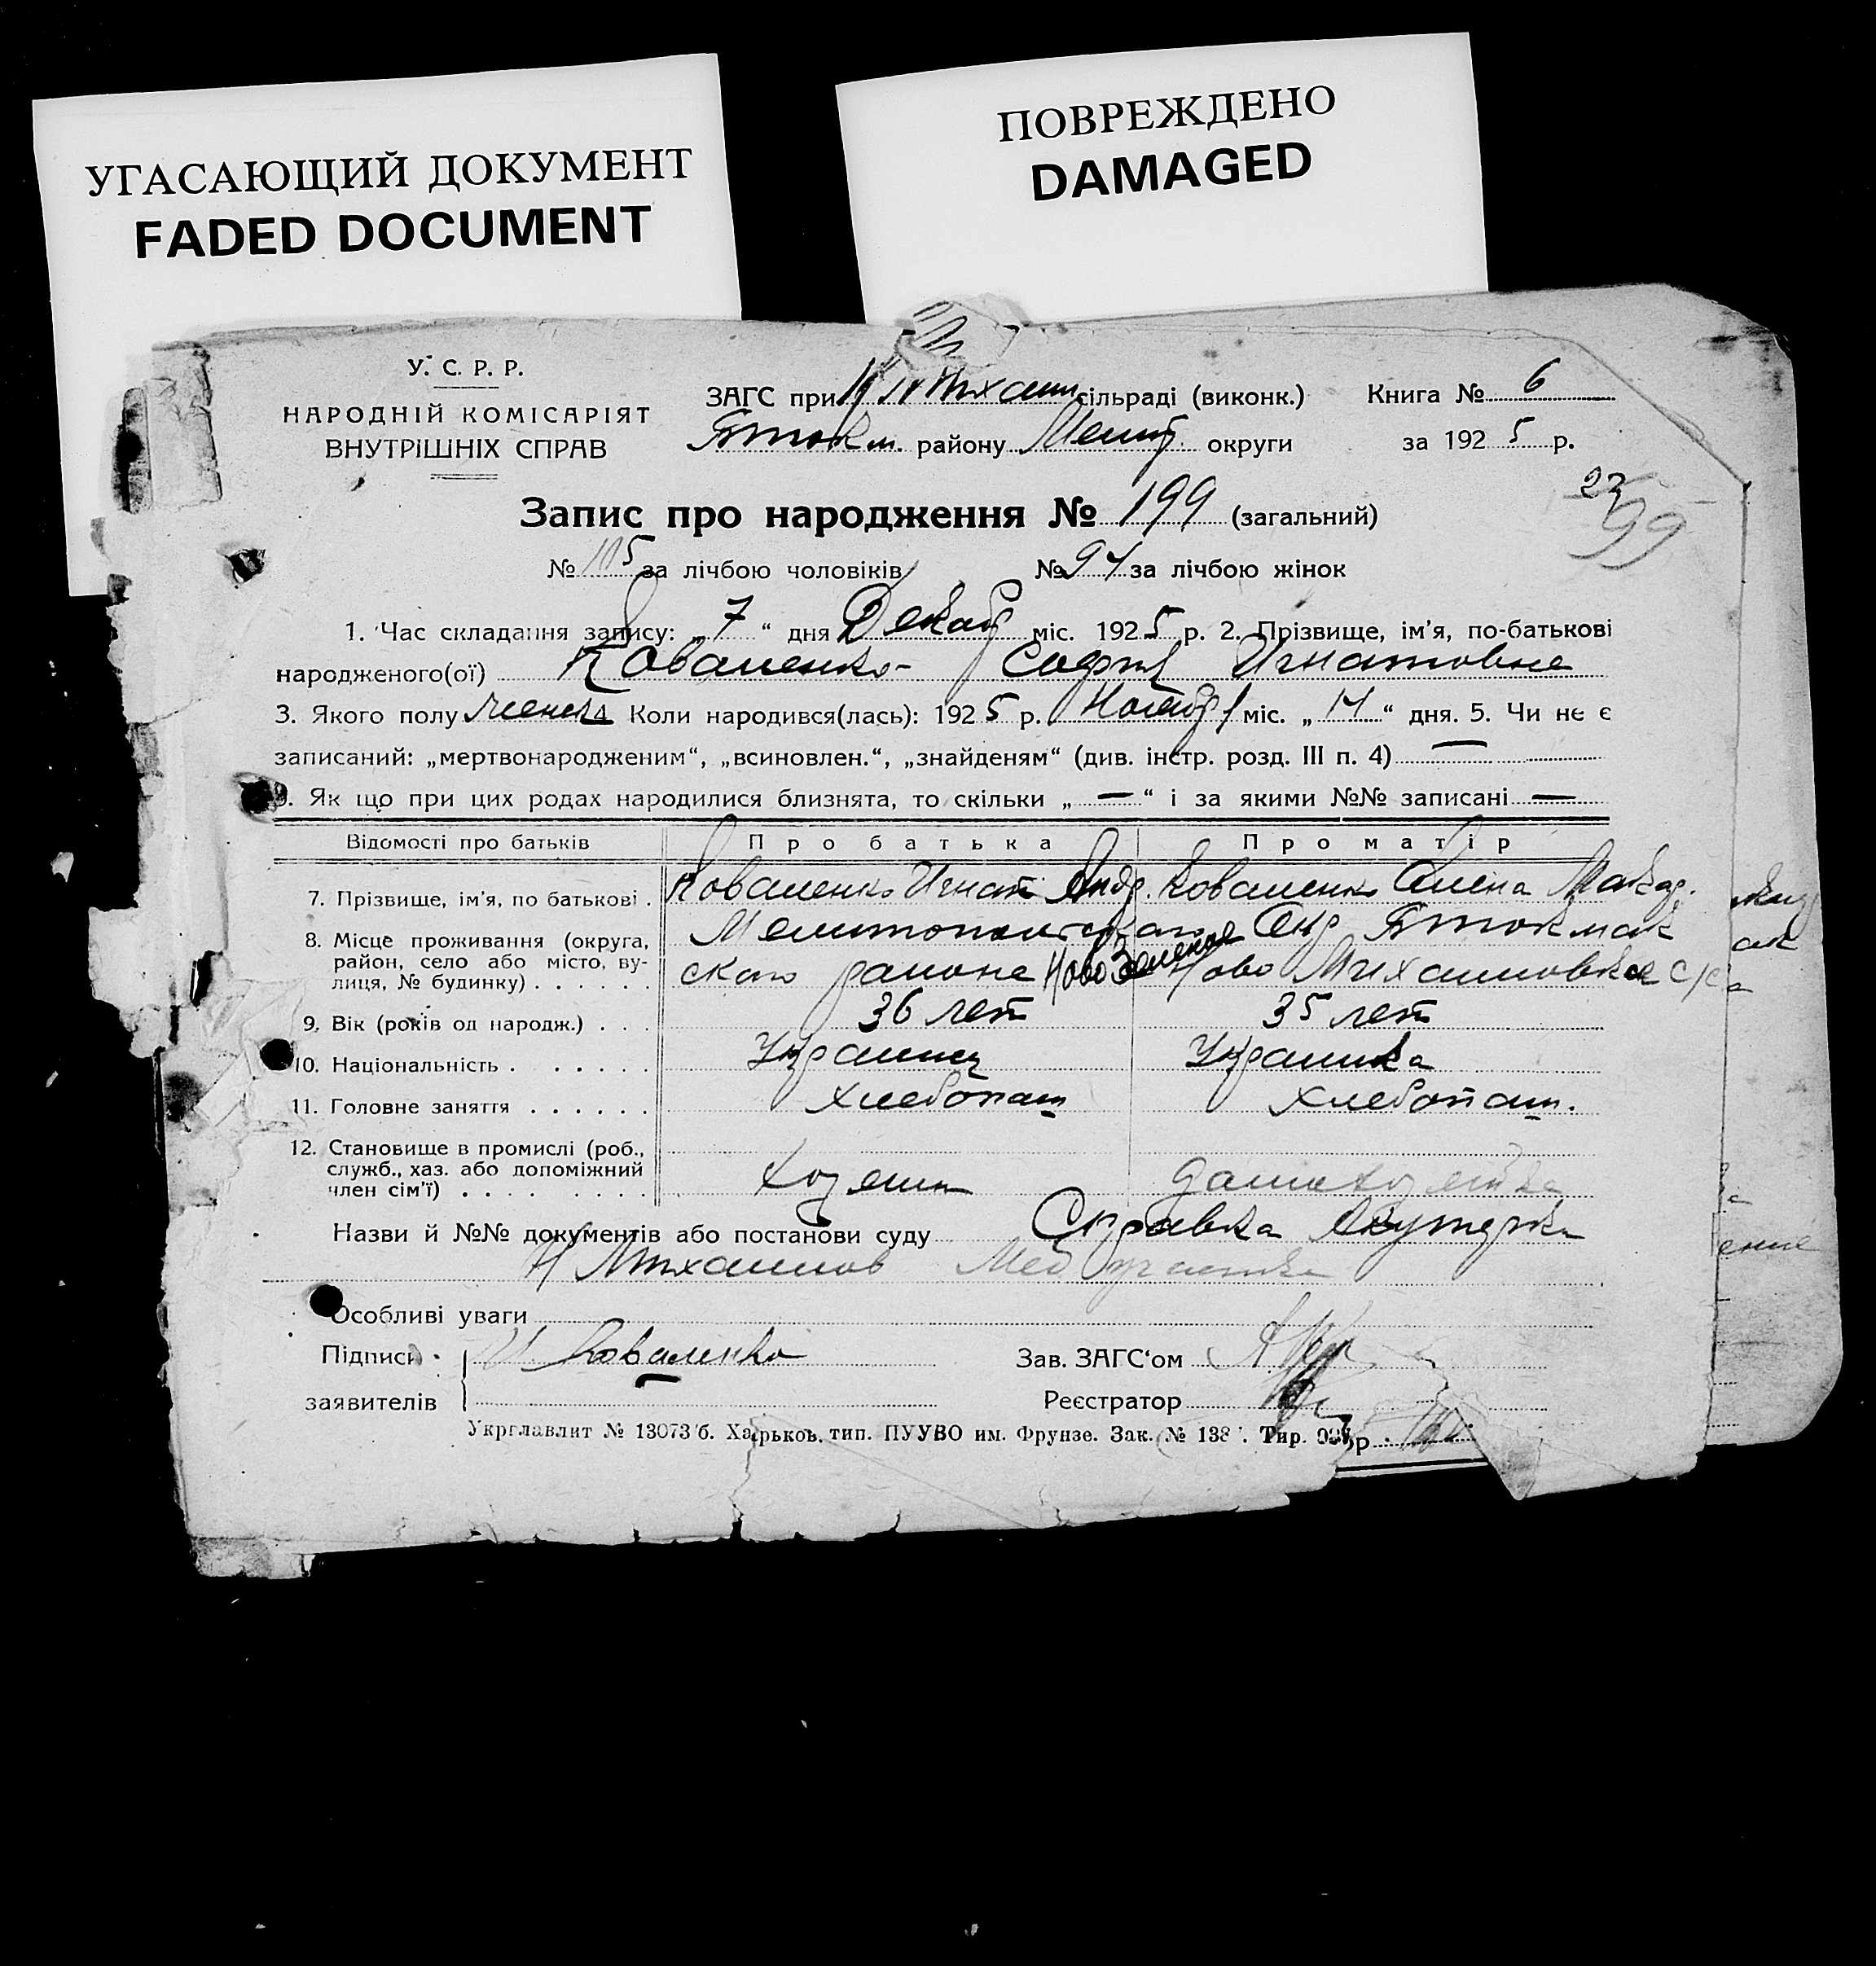 УГАСАЮЩИЙ ДОКУМЕНТ
FADED DOCUMENT
ПОВРЕЖДЕНО
DAMAGED
У. С. Р. Р.
НАРОДНІЙ КОМІСАРІЯТ
ВНУТРІШНІХ СПРАВ
ЗАГС при Михайл сільраді (виконк.) Книга № 6
Бток м. району Мелит. округи за 1925 р.
Запис про народження № 199 (загальний)
22
99
№ 105 за лічбою чоловіків № 94 за лічбою жінок
1. Час складання запису: „7“ дня Декаб міс. 1925 р. 2. Прізвище, ім’я, по-батькові
народженого(ої) Коваленко София Игнатовна
3. Якого полу женск 4. Коли народився(лась): 1925 р. Ноября міс. „14“ дня. 5. Чи не є
записаний: „мертвонародженим“, „всиновлен.“, „знайденям“ (див. інстр. розд. III п. 4) —
6. Як що при цих родах народилися близнята, то скільки „—“ і за якими №№ записані —
Відомості про батьків Про батька Про матір
7. Прізвище, ім’я, по батькові . Коваленко Игнат Андр. Коваленко Елена Макар.
8. Місце проживання (округа, район, село або місто, вулиця, № будинку) . . . . . . Мелитопольского Окр Бтокмак
ского района Ново Ново Михайловка с/с
9. Вік (років од народж.) . . . 36 лет 35 лет
10. Національність . . . . . . Украинец Украинка
11. Головне заняття . . . . . . Хлебопаш Хлебопаш.
12. Становище в промислі (роб., служб., хаз. або допоміжний член сім’ї) . . . . . . . . . Хозяин домохозяйка
Назви й №№ документів або постанови суду Справка Акушерки
Н Михайлов Мед участка
Особливі уваги
Підписи И Коваленко Зав. ЗАГС‘ом
заявителів Реєстратор
Укрглавлит № 13073/б. Харьков, тип. ПУУВО им. Фрунзе. Зак. № 138 . Тир.